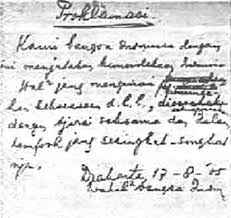 Proklamasi.
Kami bangsa Indonesia dengan
ini menjatakan kemerdekaan
Hal² jang mengenai
kekoeasaan d.l.l.,
dengan tjara saksama dan
tempoh jang sesingkat-singkat
nja.
Djakarta, 17-8-'05
Wakil² bangsa